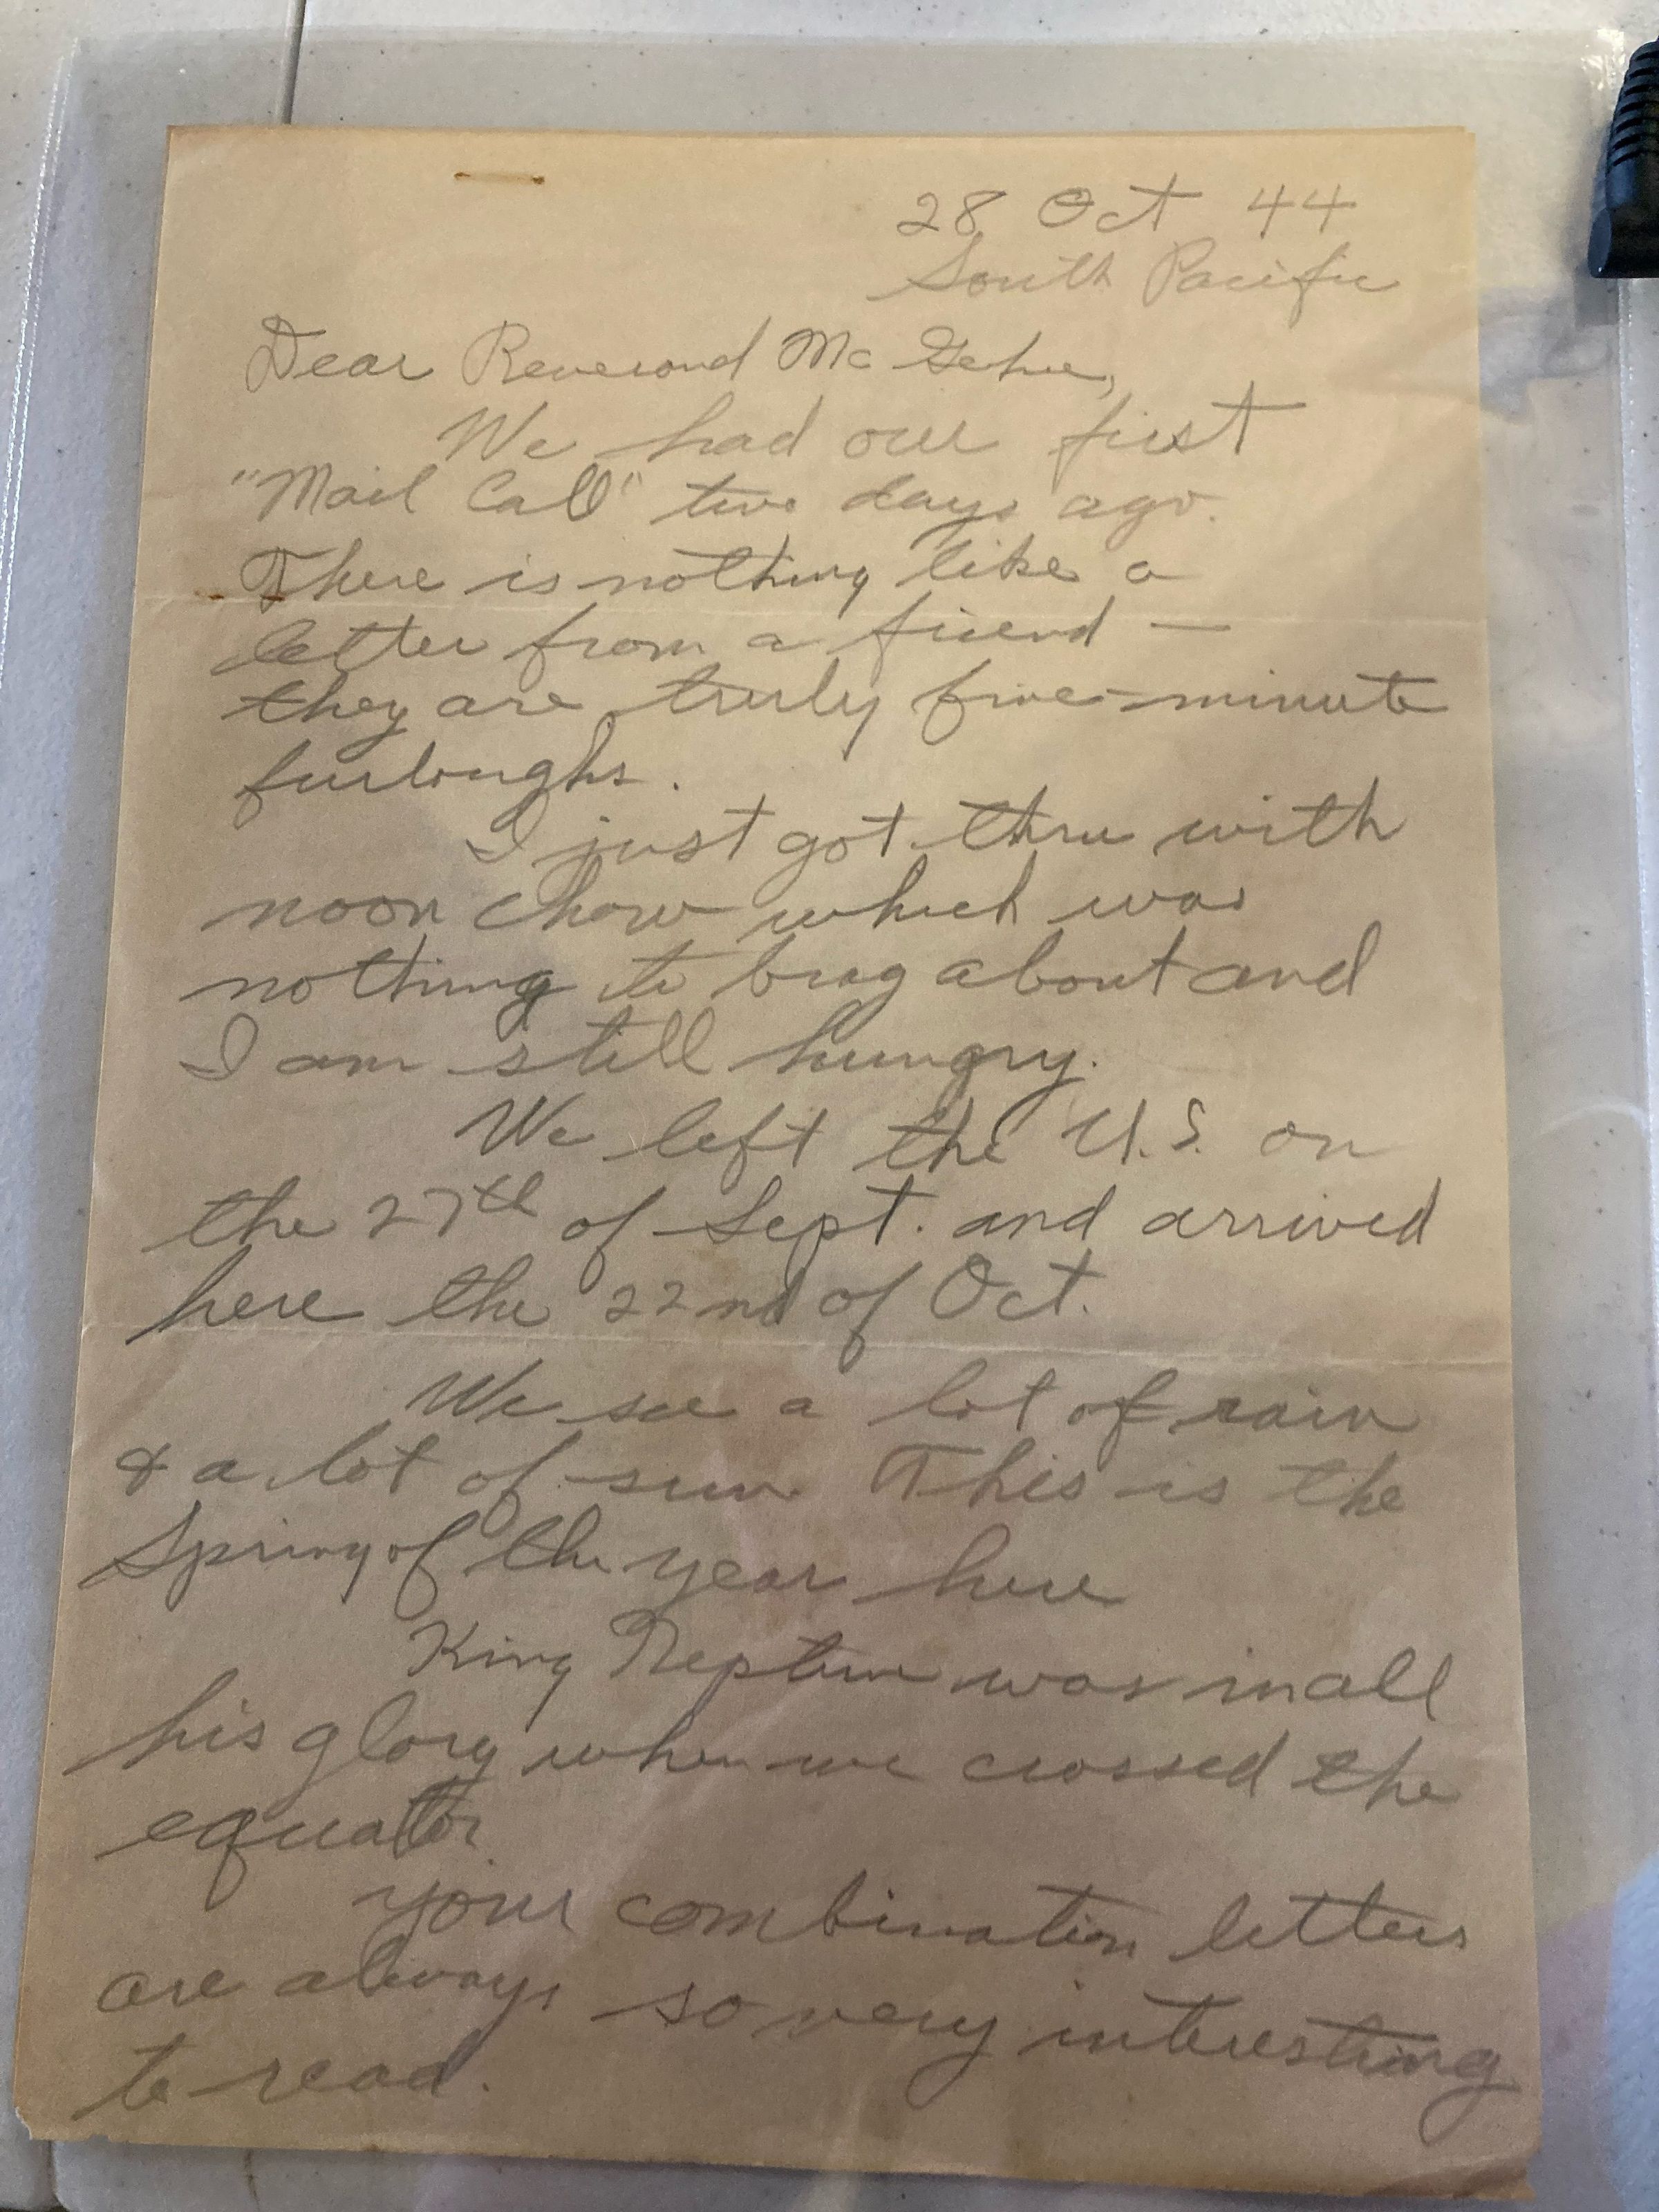 28 Oct 44
South Pacific
Dear Reverend Mc Gehee,
We had our first
"Mail Call" two days ago.
There is nothing like a
letter from a friend —
they are truly five-minute
furloughs.
I just got thru with
noon chow which was
nothing to brag about and
I am still hungry.
We left the U.S. on
the 27th of Sept. and arrived
here the 22nd of Oct.
We see a lot of rain
& a lot of sun. This is the
Spring of the year here
King Neptune was in all
his glory when we crossed the
equator.
your combination letters
are always so very interesting
to read.